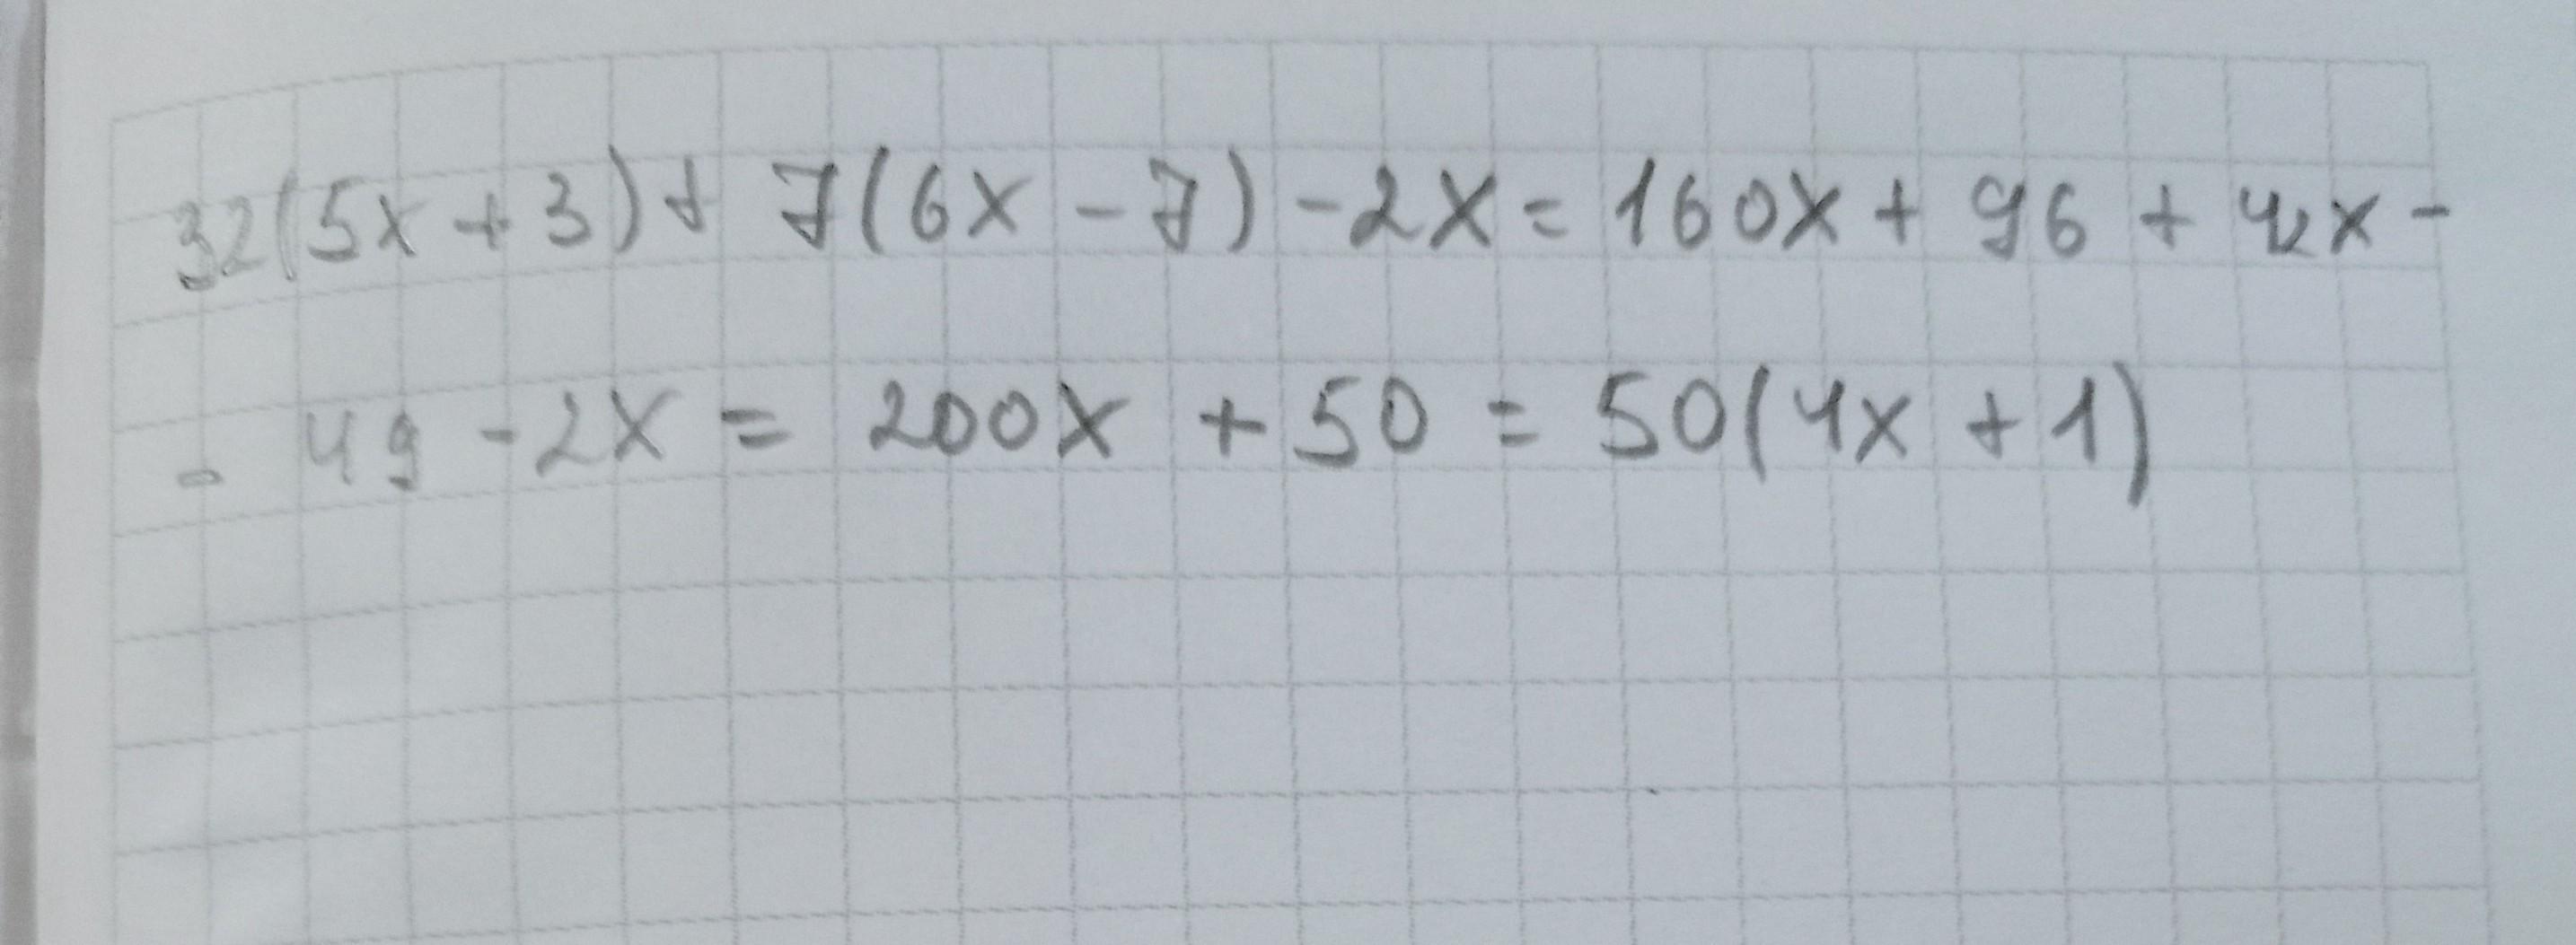 32(5x+3)+ 7(6x-7)-2x=160x+96+42x-
- 49-2x = 200x+50 = 50(4x+1)